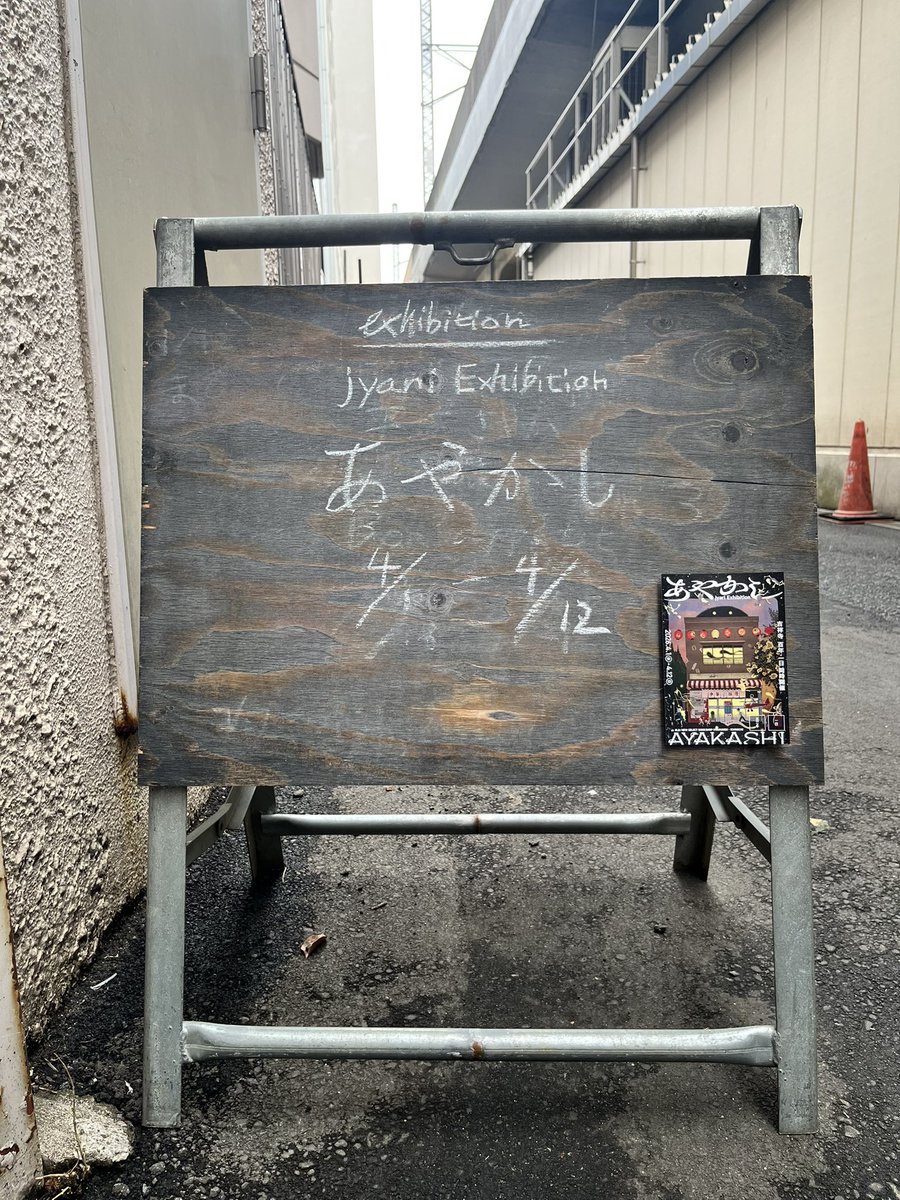 exhibition
jyani Exhibition
あやかし
4/1 - 4/12
あやかし
jyani Exhibition
AYAKASHI